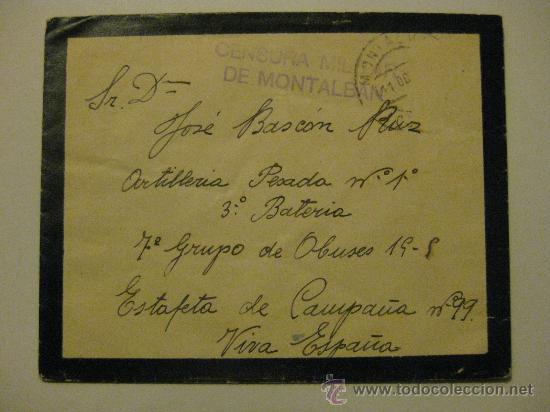 CENSURA MIL
DE MONTALBAN
Sr. Dn
José Bascón Ruiz
Artilleria Pesada nº. 1º
3ª. Bateria
7º Grupo de Obuses 15-5
Estafeta de Campaña nº. 99.
Viva España
© www.todocoleccion.net